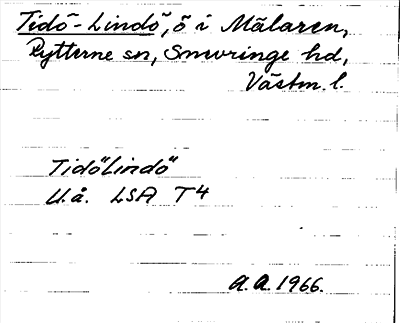 Tidö-Lindö, ö i Mälaren,
Rytterne sn, Snevringe hd,
Västm. l.
Tidö Lindö
U.å. LSA T4
A.A. 1966.